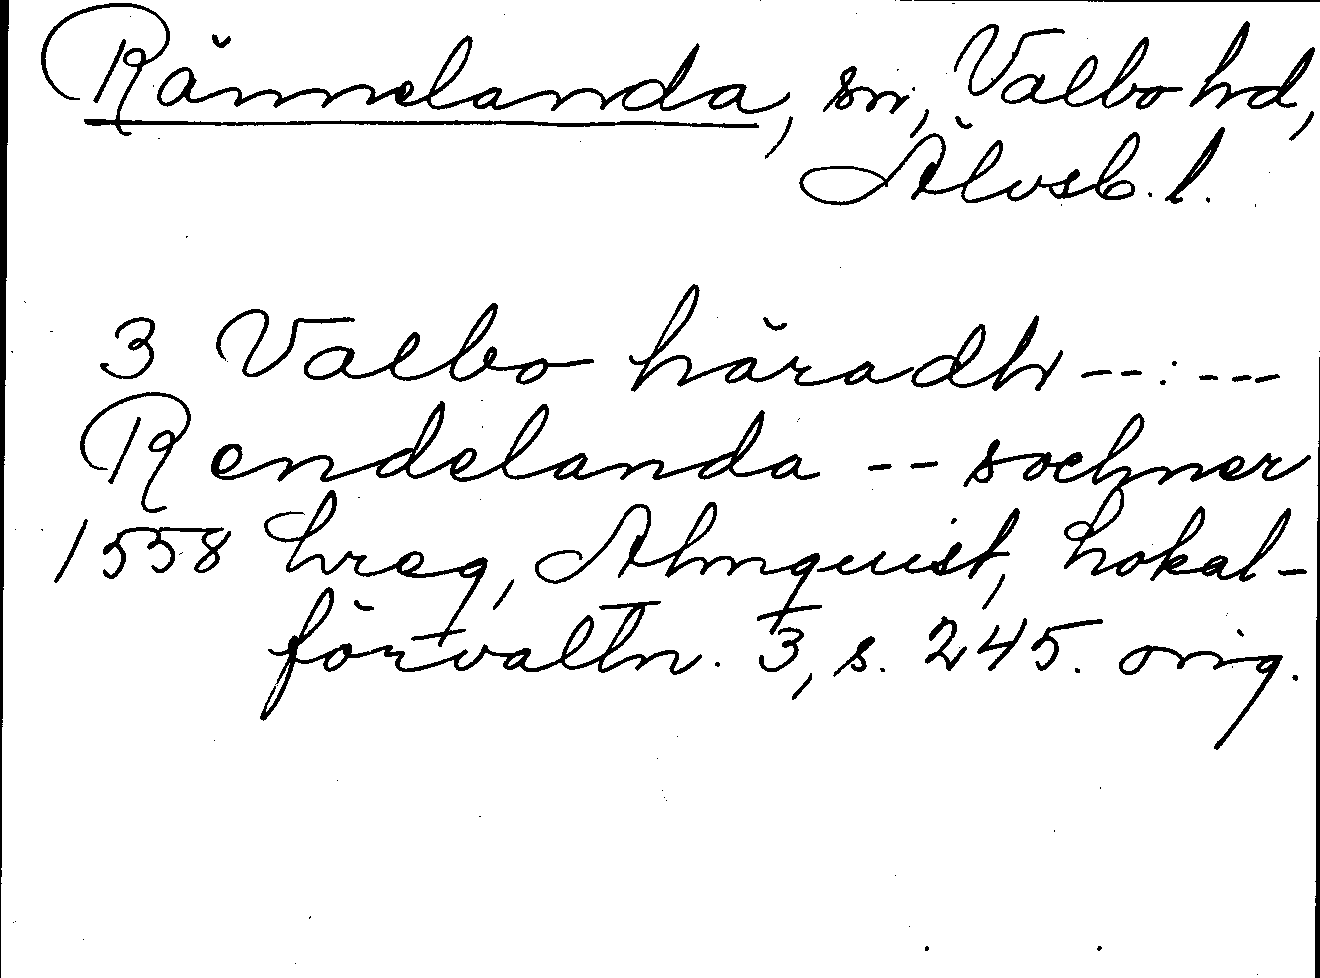 Rännelanda, sn, Valbo hd,
Älvsb. l.
3 Valbo häradh --:---
Rendelanda -- sochner
1558 hreg, Almquist, Lokal-
förvaltn. 3, s. 245. orig.